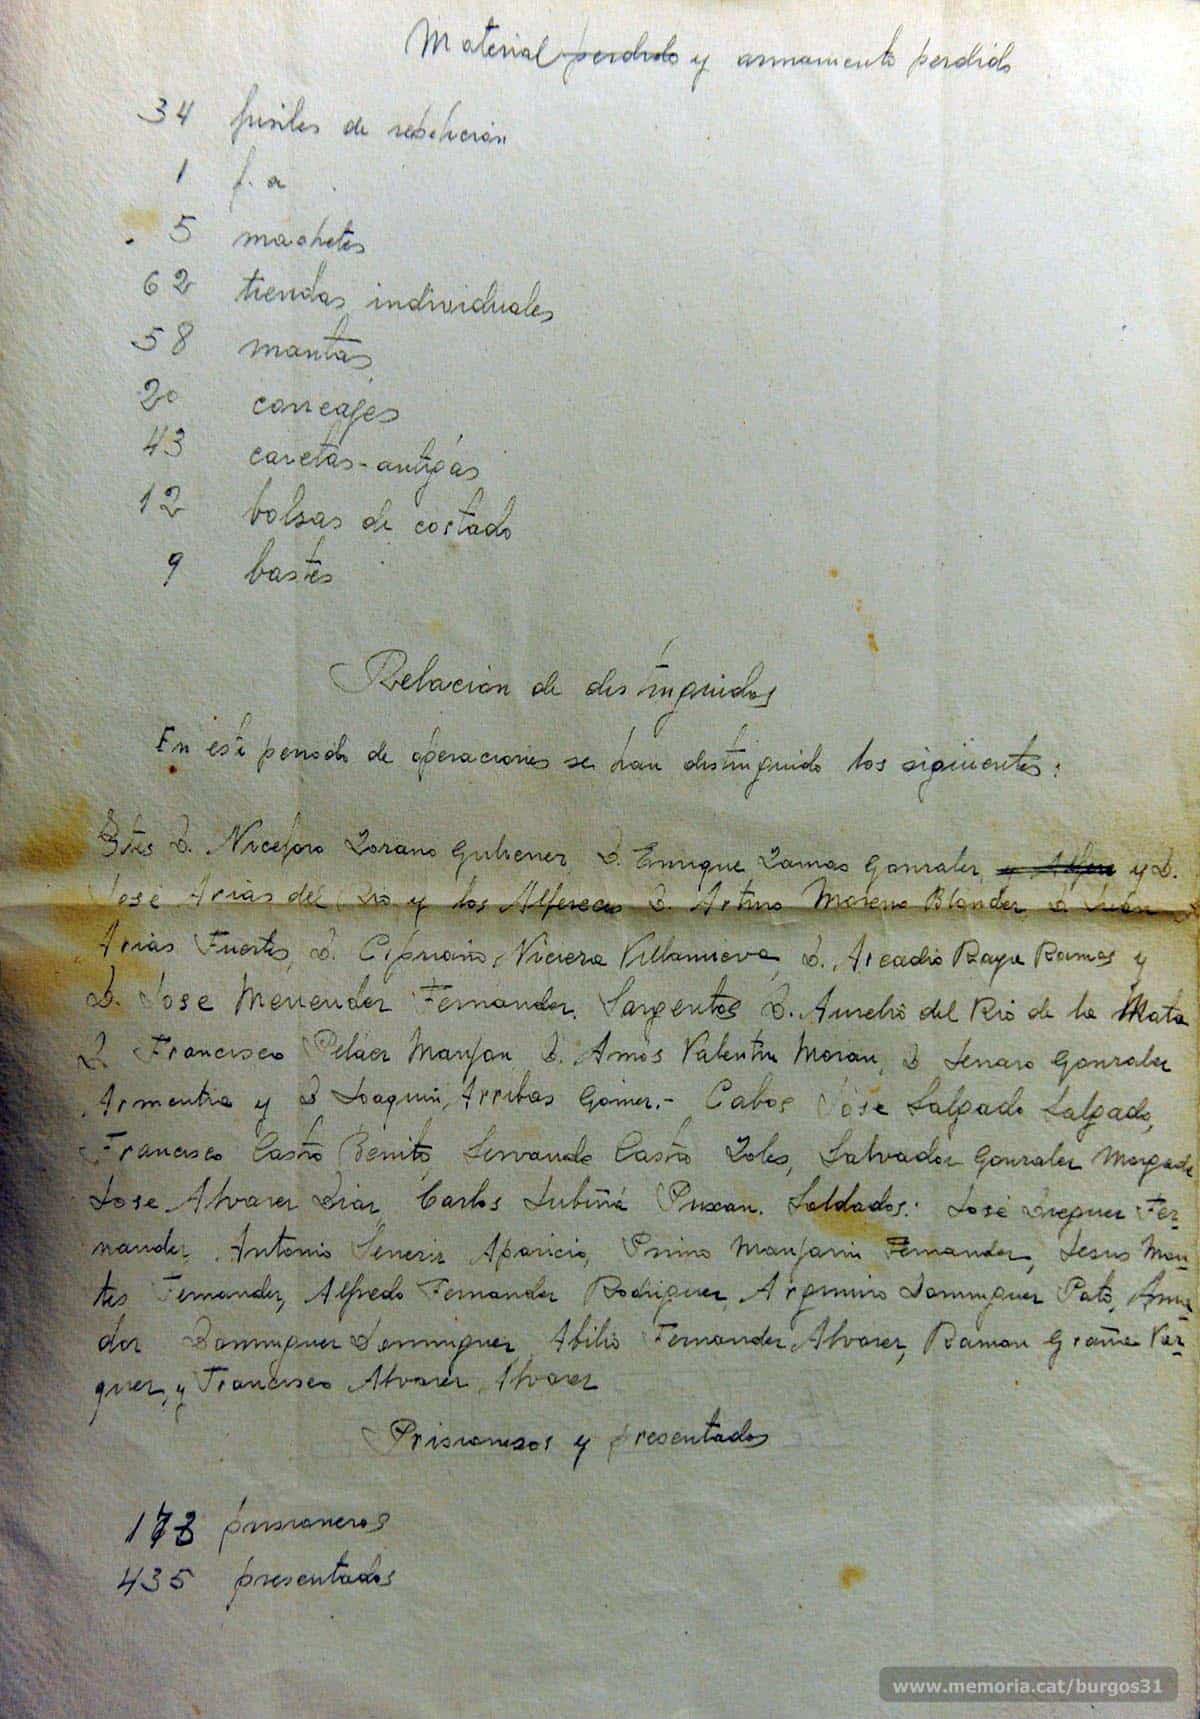 Material perdido y armamento perdido
34 fusiles de repetición
1 f. a
5 machetes
62 tiendas individuales
58 mantas
20 correajes
43 caretas-antigás
12 bolsas de costado
9 bastes
Relación de distinguidos
En este periodo de operaciones se han distinguido los siguientes:
D. Niceforo Lorano Gutierrez D. Enrique Lamas Gonzalez, y D.
José Arias del Rio y los Alfereces D. Arturo Moreno Blander, D.
Arias Fuertes, D. Cipriano Viciera Villanueva, D. Arcadio Raya Ramos y
D. Jose Menendez Fernandez. Sargentos D. Aurelio del Rio de la Mata
D. Francisco Pelaez Manjon D. Amós Valentin Moran, D. Genaro Gonzalez
Armentia y D Joaquin Arribas Gómez.- Cabos Jose Salgado Salgado,
Francisco Castro Benito, Servando Castro Soles, Salvador Gonzalez Morgade
Jose Alvarez Diaz, Carlos Lubiñá Puxan. Soldados: José Dieguez Fer-
nandez, Antonio Aparicio, Primo Manjarin Fernandez, Jesus Mon-
tes Fernandez, Alfredo Fernandez Rodriguez, Argimiro Dominguez Pato, Ama-
dor Dominguez Dominguez, Abilio Fernandez Alvarez, Ramon Graña Vaz-
quez, y Francisco Alvarez Alvarez
Prisioneros y presentados
prisioneros
435 presentados
www.memoria.cat/burgos31